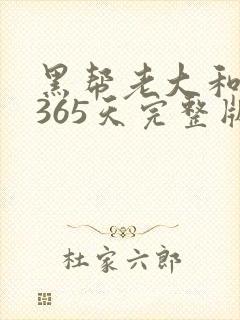 黑帮老大和
365天完整版
杜家六郎